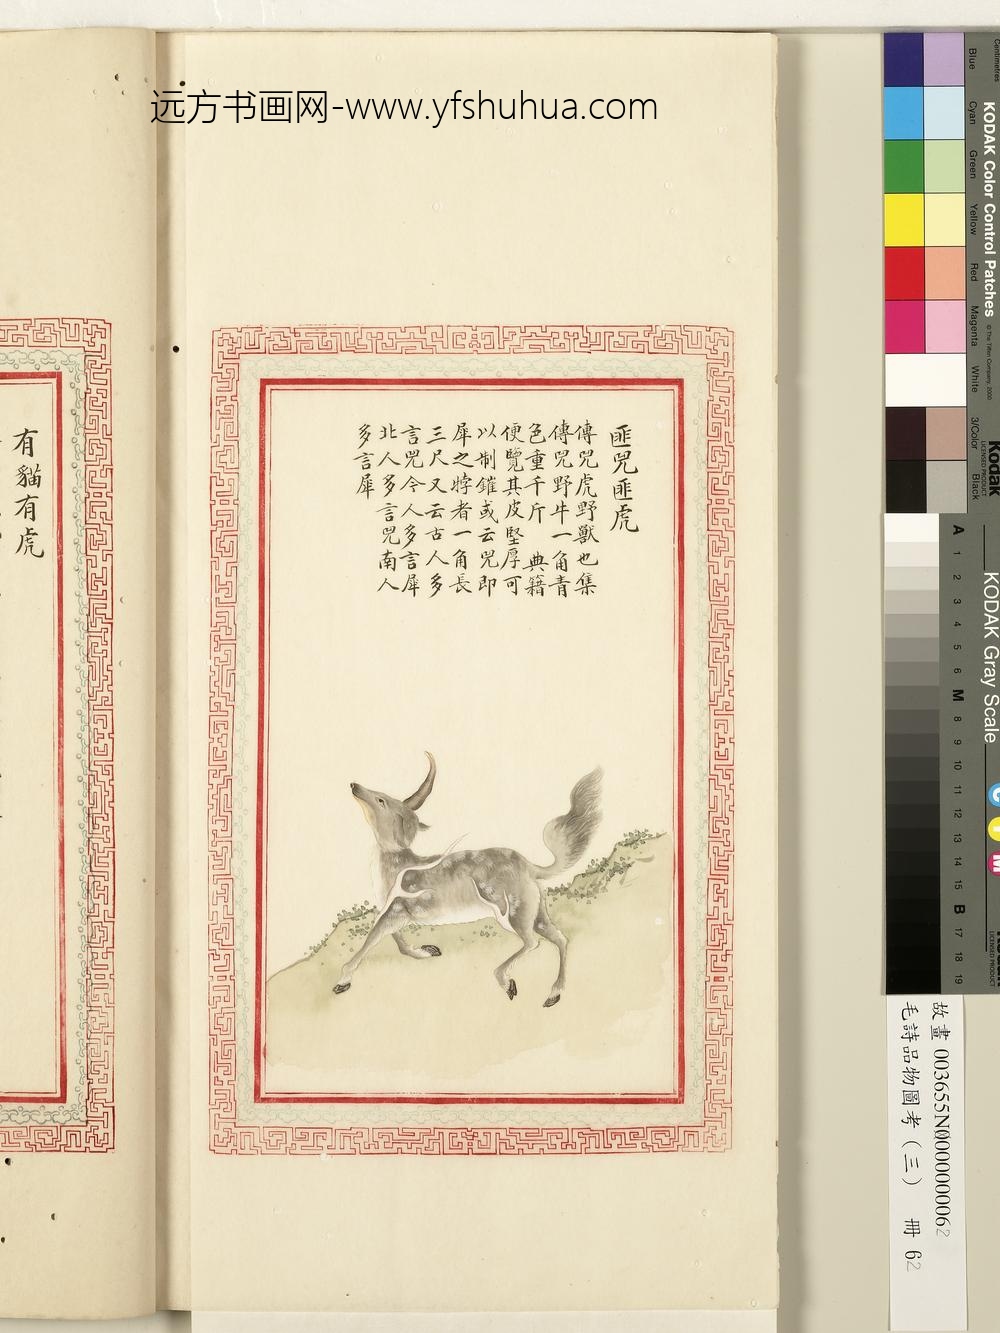 远方书画网-www.yfshuhua.com
匪兕匪虎
傳兕虎野獸也集
傳兕野牛一角青
色重千斤 典籍
便覽其皮堅厚可
以制鎧或云兕即
犀之牸者一角長
三尺又云古人多
言兕今人多言犀
北人多言兕南人
多言犀
有貓有虎
Centimetres
Blue
Cyan
Green
Yellow
Red
Magenta
White
3/Color
Black
KODAK Color Control Patches
© The Tiffen Company, 2000
Kodak
LICENSED PRODUCT
KODAK Gray Scale
A 1 2 3 4 5 6 M 8 9 10 11 12 13 14 15 B 17 18 19
C
Y
M
Kodak
LICENSED PRODUCT
故畫 003655N000000062
毛詩品物圖考（三） 冊 62